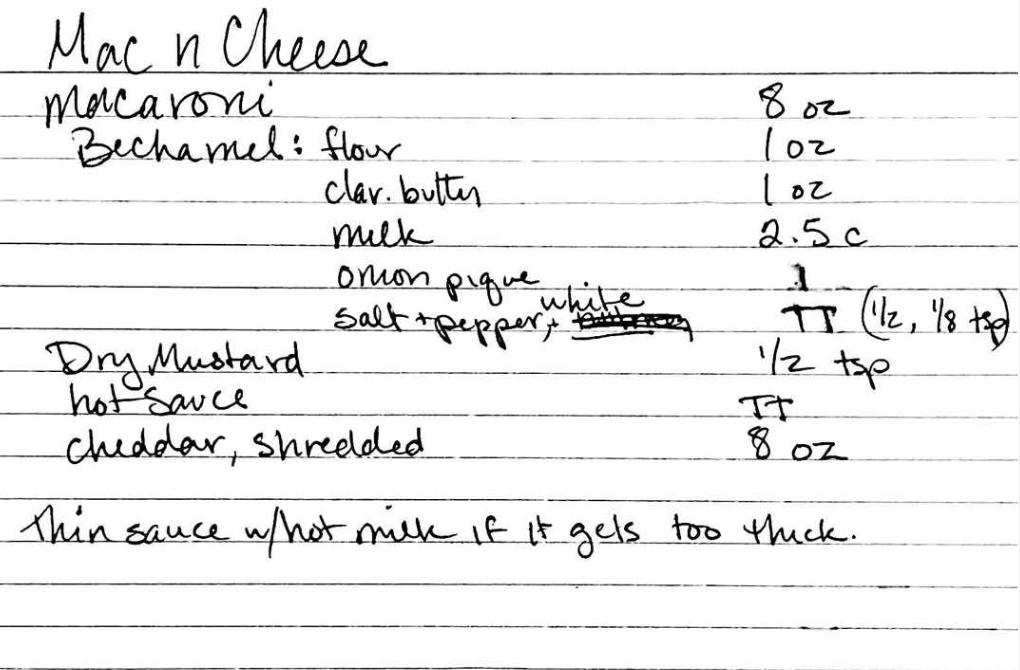 Mac n Cheese
macaroni 8 oz
Bechamel: flour 1 oz
clar. butter 1 oz
milk 2.5 c
onion pique 1
salt + pepper, white TT (1/2, 1/8 tsp)
Dry Mustard 1/2 tsp
hot sauce TT
cheddar, shredded 8 oz
Thin sauce w/hot milk if it gets too thick.